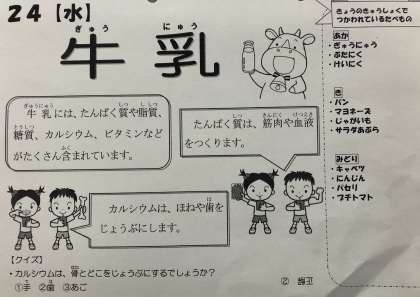 24【水】
ぎゅう にゅう
牛 乳
ぎゅうにゅう しつ ししつ
牛乳には、たんぱく質や脂質、
とうしつ
糖質、カルシウム、ビタミンなど
ふく
がたくさん含まれています。
しつ きんにく けつえき
たんぱく質は、筋肉や血液
をつくります。
は
カルシウムは、ほねや歯を
じょうぶにします。
【クイズ】
・カルシウムは、骨とどこをじょうぶにするでしょうか?
①手 ②歯 ③あご
きょうのきゅうしょくで
つかわれているたべもの
あか
・ぎゅうにゅう
・ぶたにく
・けいにく
き
・パン
・マヨネーズ
・じゃがいも
・サラダあぶら
みどり
・キャベツ
・にんじん
・パセリ
・プチトマト